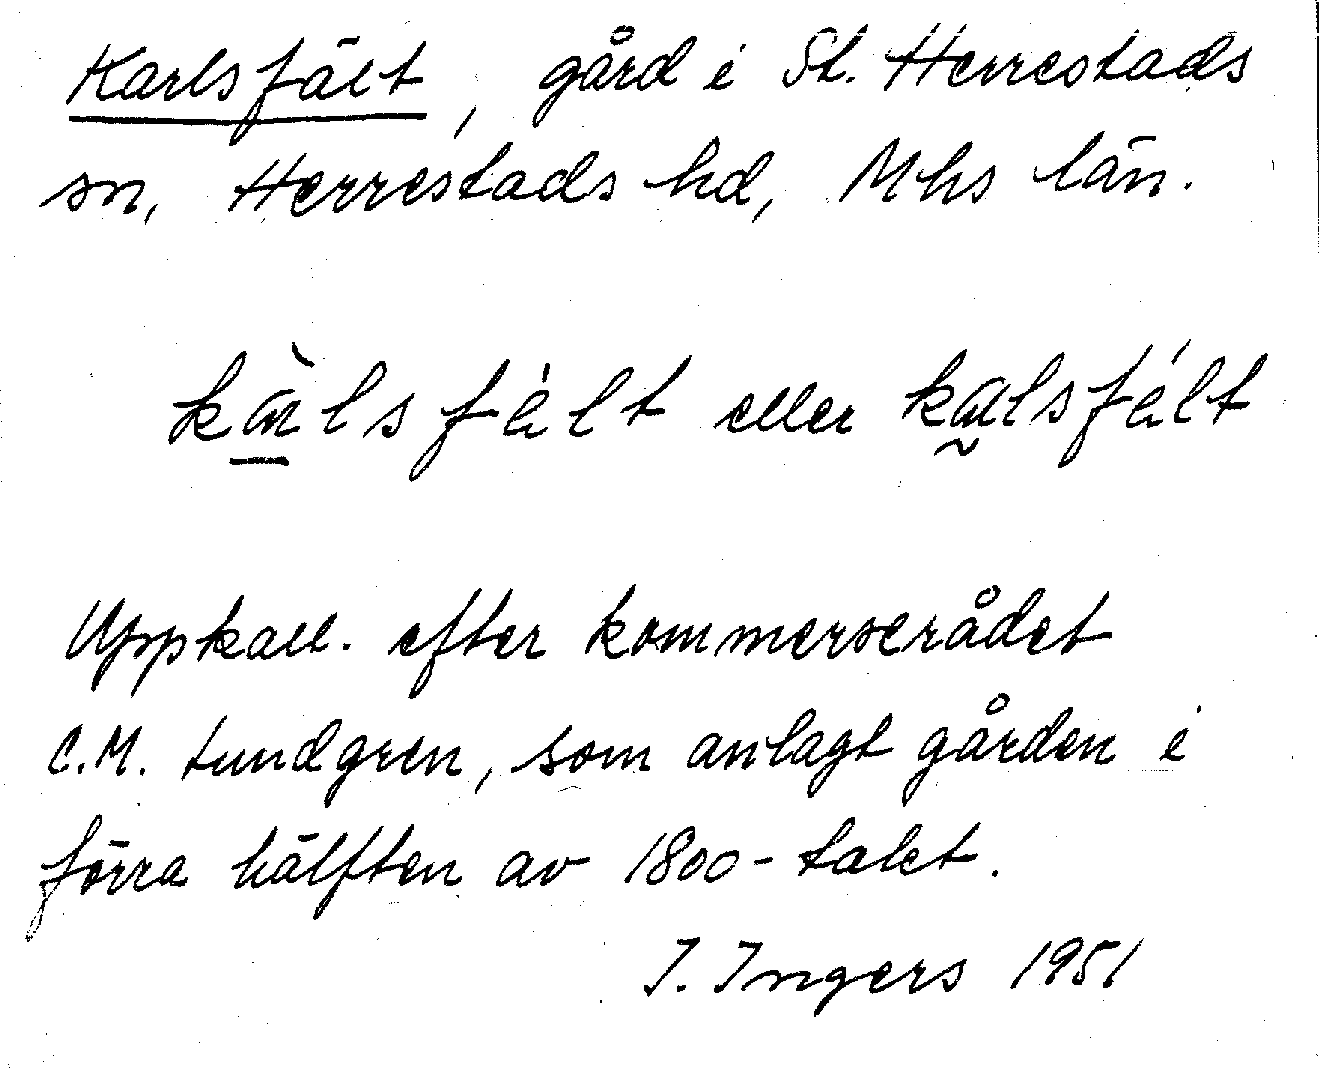 Karlsfält, gård i St. Herrestads
sn, Herrestads hd, Mhs län.
eller
Uppkall. efter kommerserådet
C.M. Lundgren, som anlagt gården i
förra hälften av 1800-talet.
I. Ingers 1951